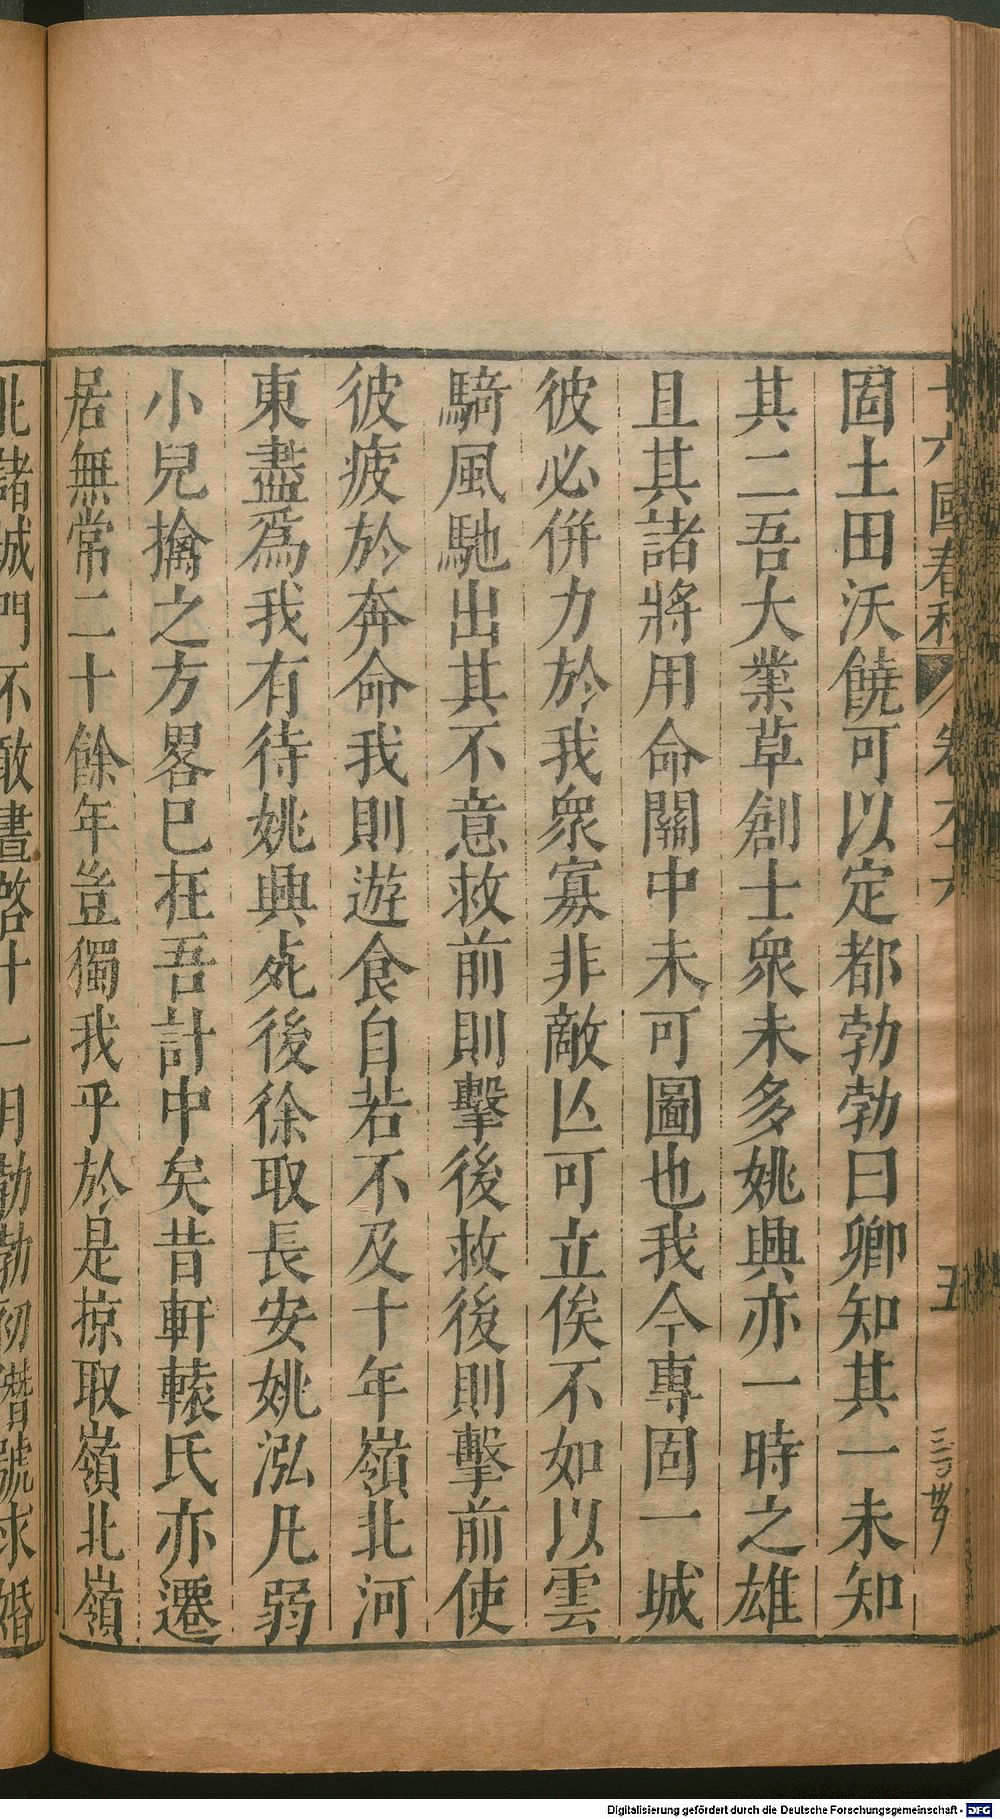 十六國春秋 卷六十六 五
固土田沃饒可以定都勃勃曰卿知其一未知
其二吾大業草創士衆未多姚興亦一時之雄
且其諸將用命關中未可圖也我今專固一城
彼必併力於我衆寡非敵亾可立俟不如以雲
騎風馳出其不意救前則擊後救後則擊前使
彼疲於奔命我則遊食自若不及十年嶺北河
東盡爲我有待姚興死後徐取長安姚泓凡弱
小兒擒之方畧已在吾計中矣昔軒轅氏亦遷
居無常二十餘年豈獨我乎於是掠取嶺北嶺
北諸城門不敢晝啓十一月勃勃初僭號求婚
Digitalisierung gefördert durch die Deutsche Forschungsgemeinschaft - DFG